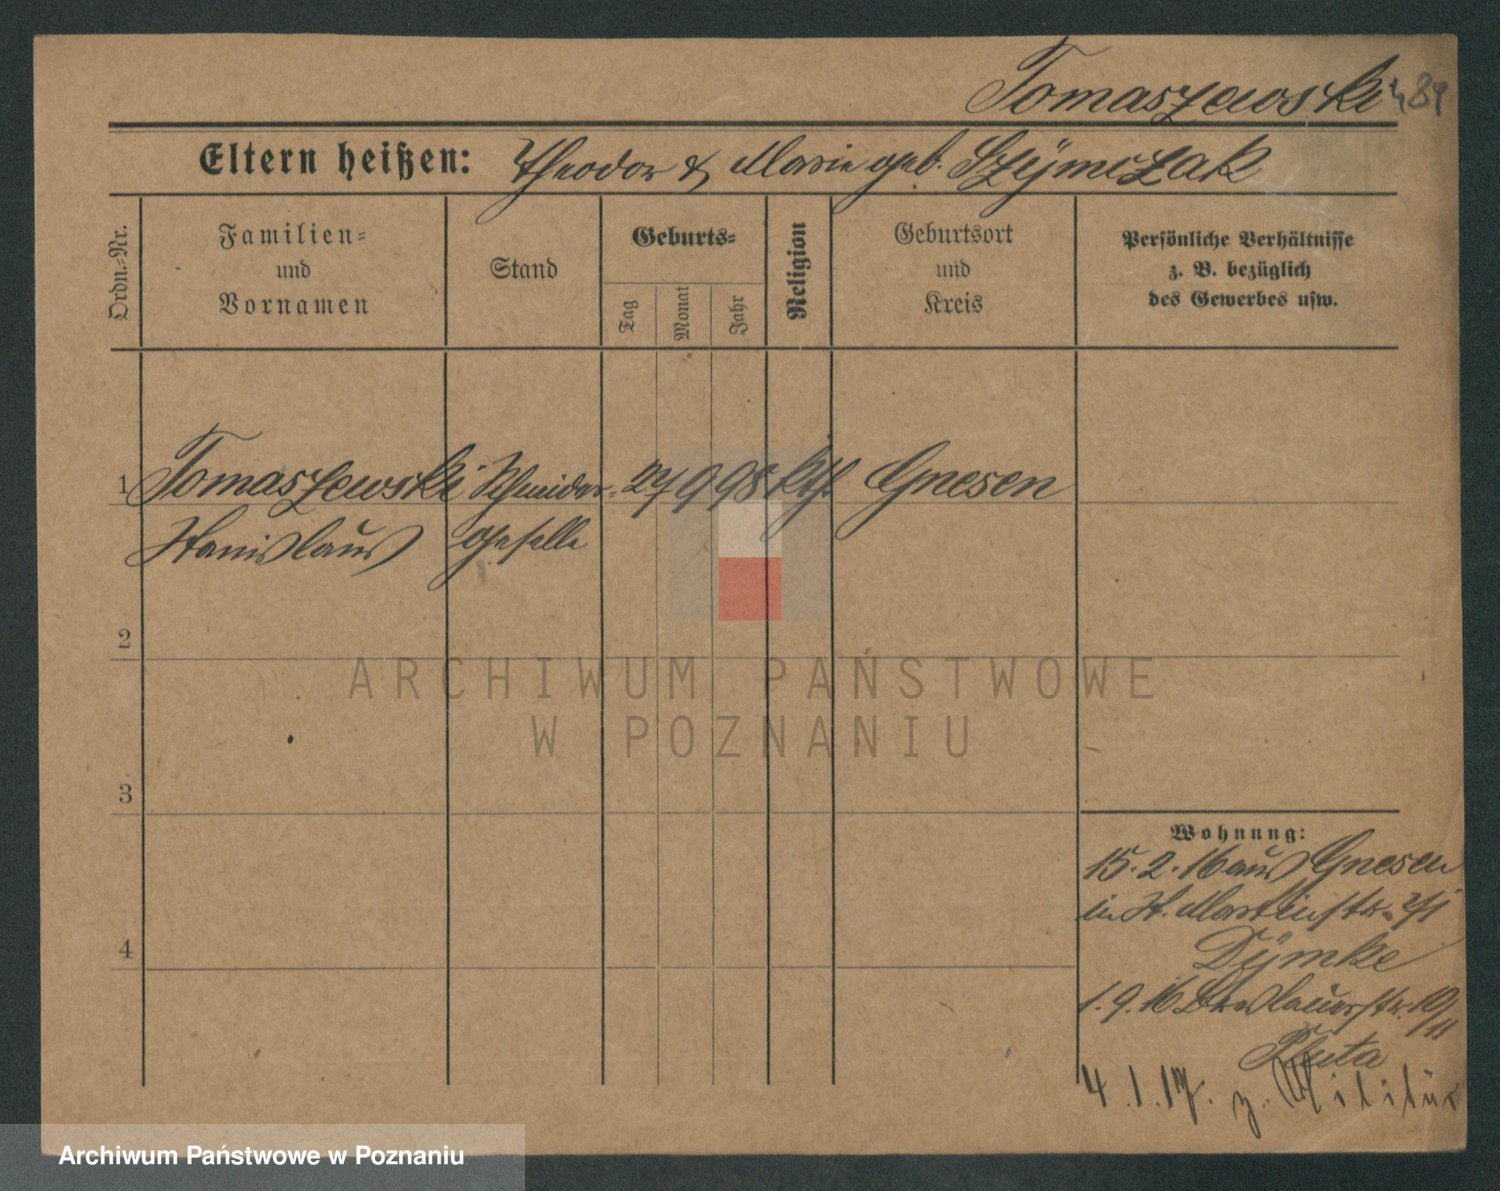 Tomaszewski
Eltern heißen: Theodor & Marie geb. Szÿmczak
Ordn.-Nr.
Familien-
und
Vornamen
Stand
Geburts-
Tag
Monat
Jahr
Religion
Geburtsort
und
Kreis
Persönliche Verhältnisse
z. B. bezüglich
des Gewerbes usw.
1 Tomaszewski Schneider- 27 9 98 kth Gnesen
Stanislaus geselle
2
3
4
Wohnung:
15. 2. 16 aus Gnesen
in St. Martinstr.
Dÿmke
1. 9. 16 Breslauerstr. 10/11
4. 1. 17. z. Militär
ARCHIWUM PAŃSTWOWE
W POZNANIU
Archiwum Państwowe w Poznaniu